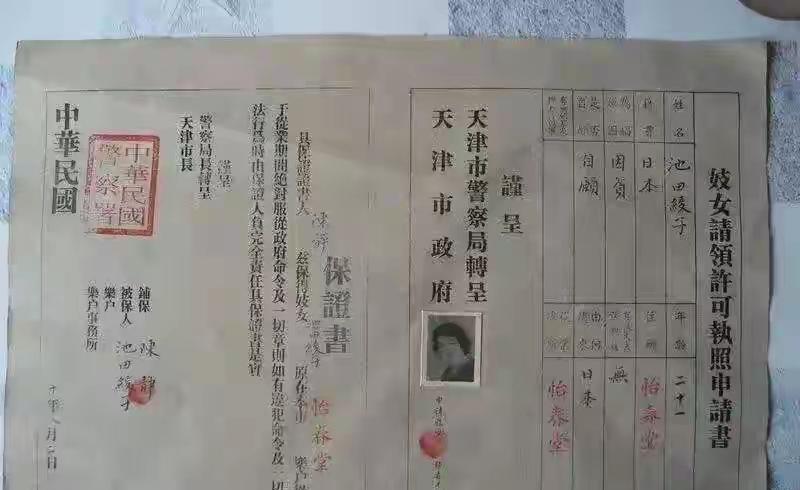 妓女請領許可執照申請書
姓名 池田綾子 年齡 二十一
籍貫 日本 住址 怡春堂
因貧 無
是否自願 自願 由何處來 日本
怡春堂
謹呈
天津市警察局轉呈
天津市政府
保證書
具保證書人 陳靜 茲保得妓女 池田綾子 原在本市 怡春堂 樂户
于從業期間絕對服從政府命令及一切章則如有違犯命令及一切
法行爲時由保證人負完全責任具保證書是實
謹呈
警察局長轉呈
天津市長
鋪保 陳靜
被保人 池田綾子
樂户
樂户事務所
中華民國
中華民國
警察署
十年 月 日